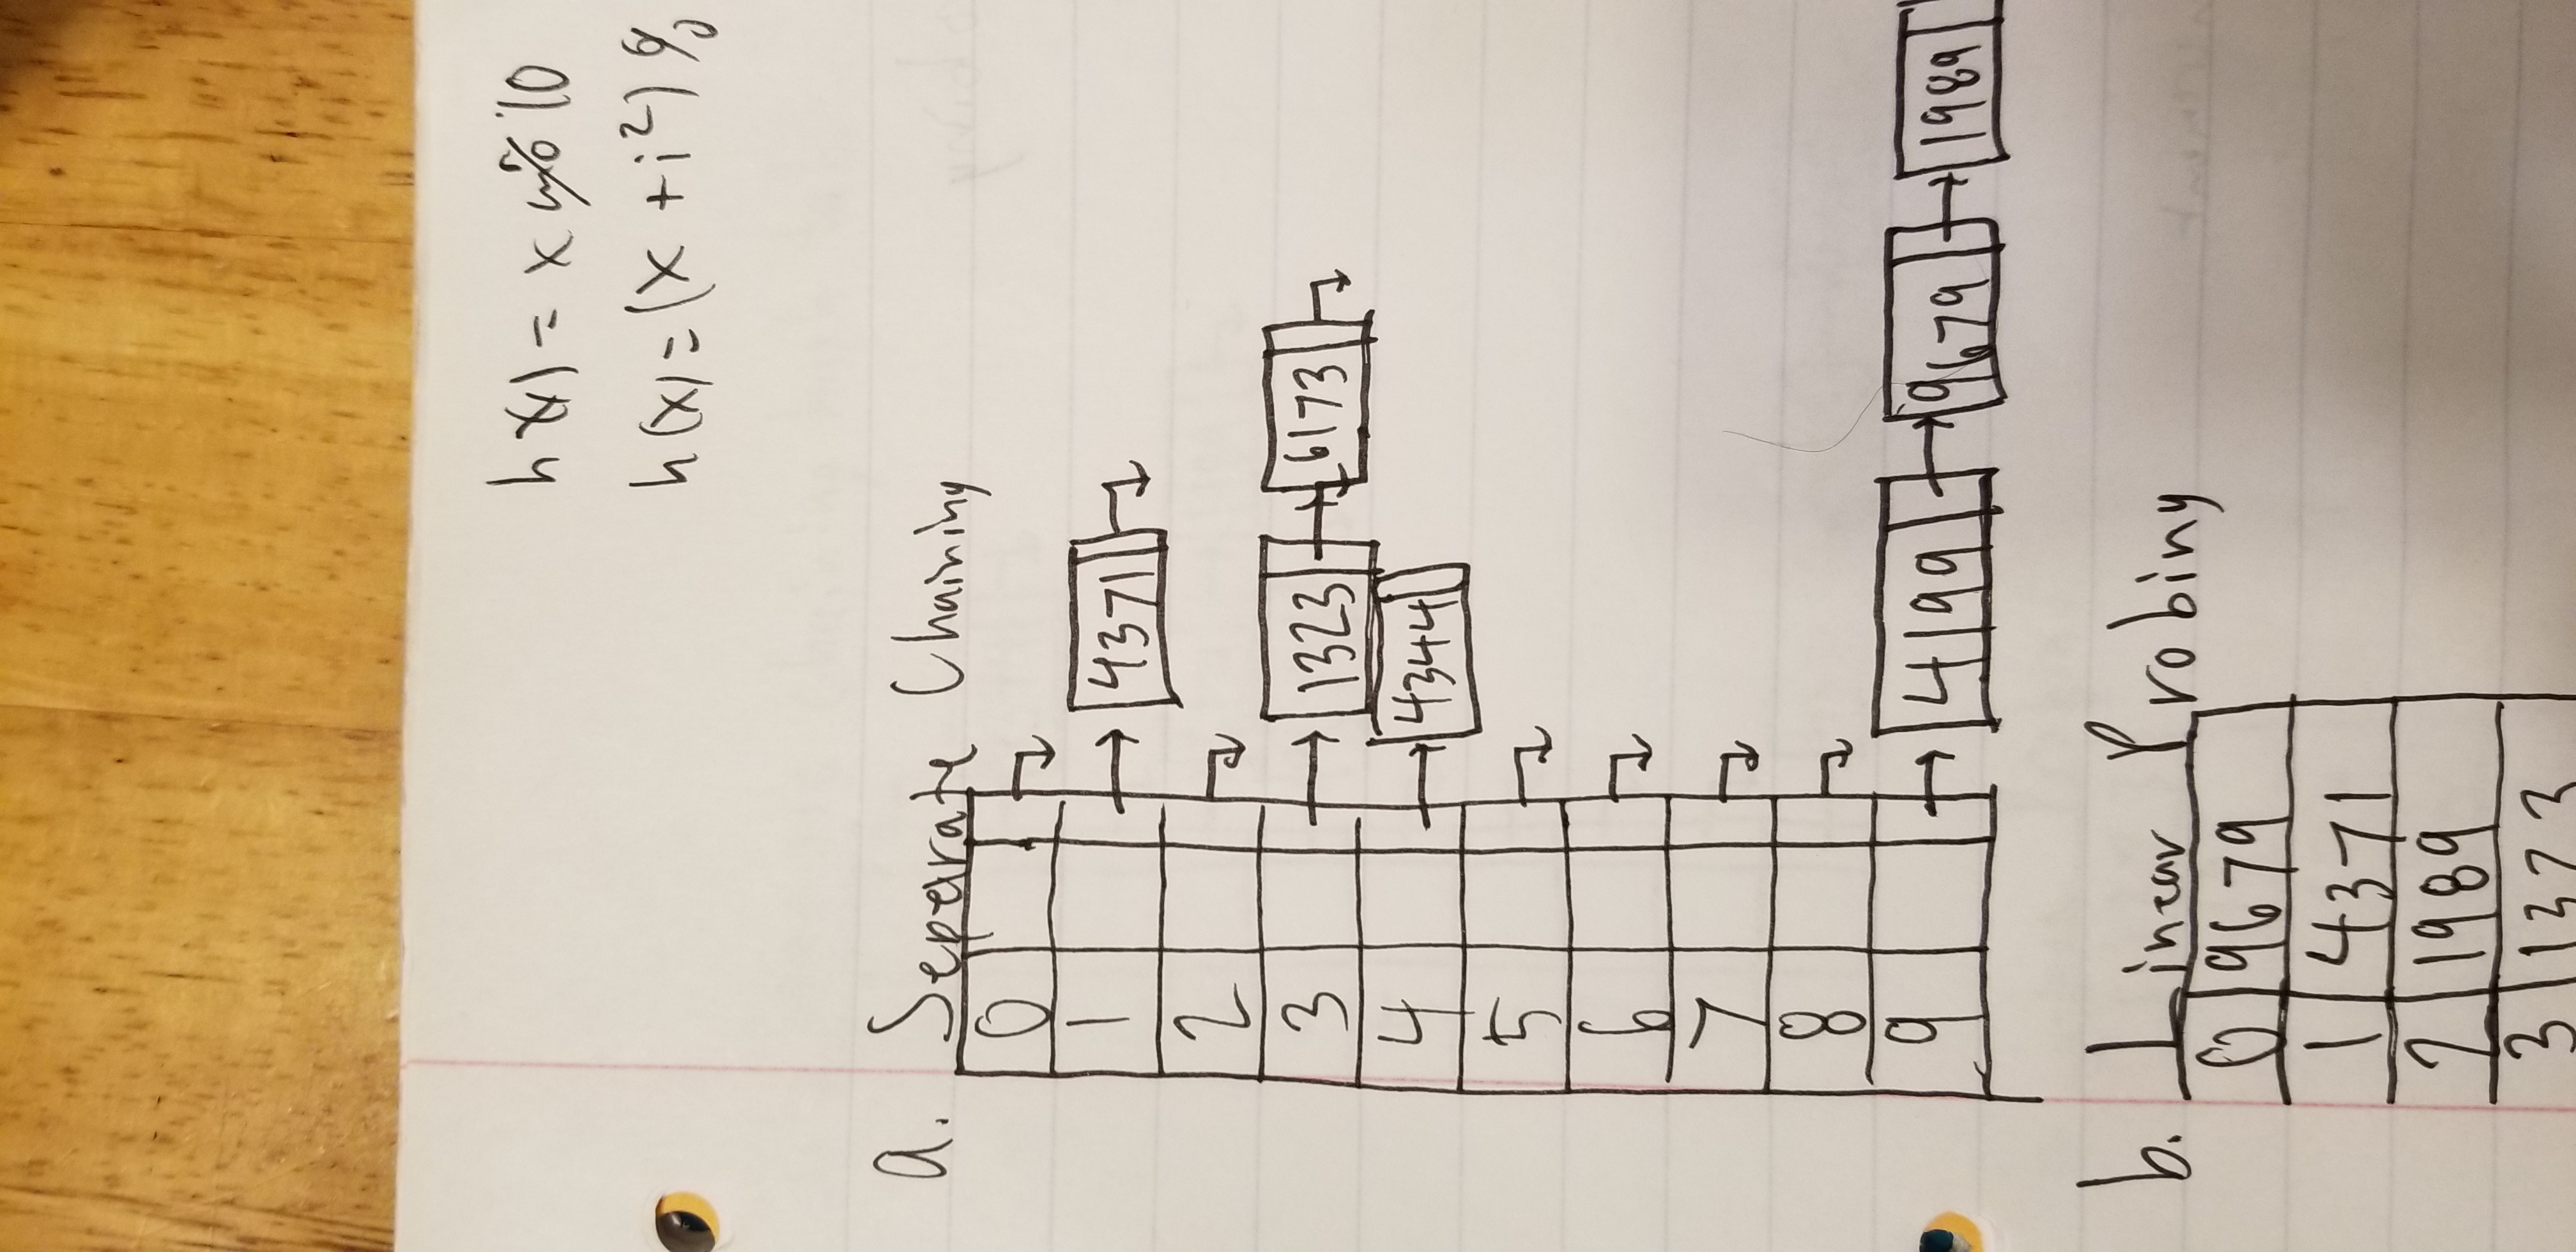 h(x) = x % 10
h(x) = (x + i²) %
a. Separate Chaining
0
1 4371
2
3 1323 6173
4 4344
5
6
7
8
9 4199 9679 1989
b. Linear Probing
0 9679
1 4371
2 1989
3 1323